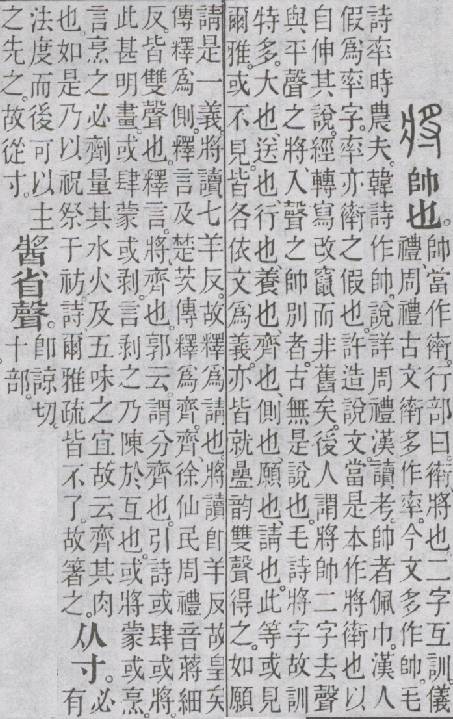 將
帥也。
帥當作𧗿。行部曰。𧗿、將也。二字互訓。儀
禮周禮古文𧗿多作率。今文多作帥。毛
詩率時農夫。韓詩作帥。說詳周禮漢讀考。帥者佩巾。漢人
假爲率字。率亦𧗿之假也。許造說文。當是本作將𧗿也。以
自伸其說。經轉寫改竄而非舊矣。後人謂將帥二字去聲。
與平聲之將、入聲之帥別者。古無是說也。毛詩將字故訓
特多。大也、送也、行也、養也、齊也、側也、願也、請也。此等或見
爾雅。或不見。皆各依文爲義。亦皆就疊韵雙聲得之。如願
請是一義。將讀七羊反。故釋爲請也。將讀卽羊反。故皇矣
傳釋爲側。釋言及楚茨傳釋爲齊。齊、徐仙民周禮音蔣細
反。皆雙聲也。釋言。將齊也。郭云。謂分齊也。引詩或肆或將。
此甚明畫。或肆蒙或剝。言剝之乃陳於互也。或將蒙或烹。
言烹之必劑量其水火及五味之宜。故云齊其肉
也。如是乃以祝祭于祊。詩爾雅疏皆不了。故箸之。
从寸。
必
有
法度而後可以主
之先之。故從寸。
醬省聲。
卽諒切。
十部。